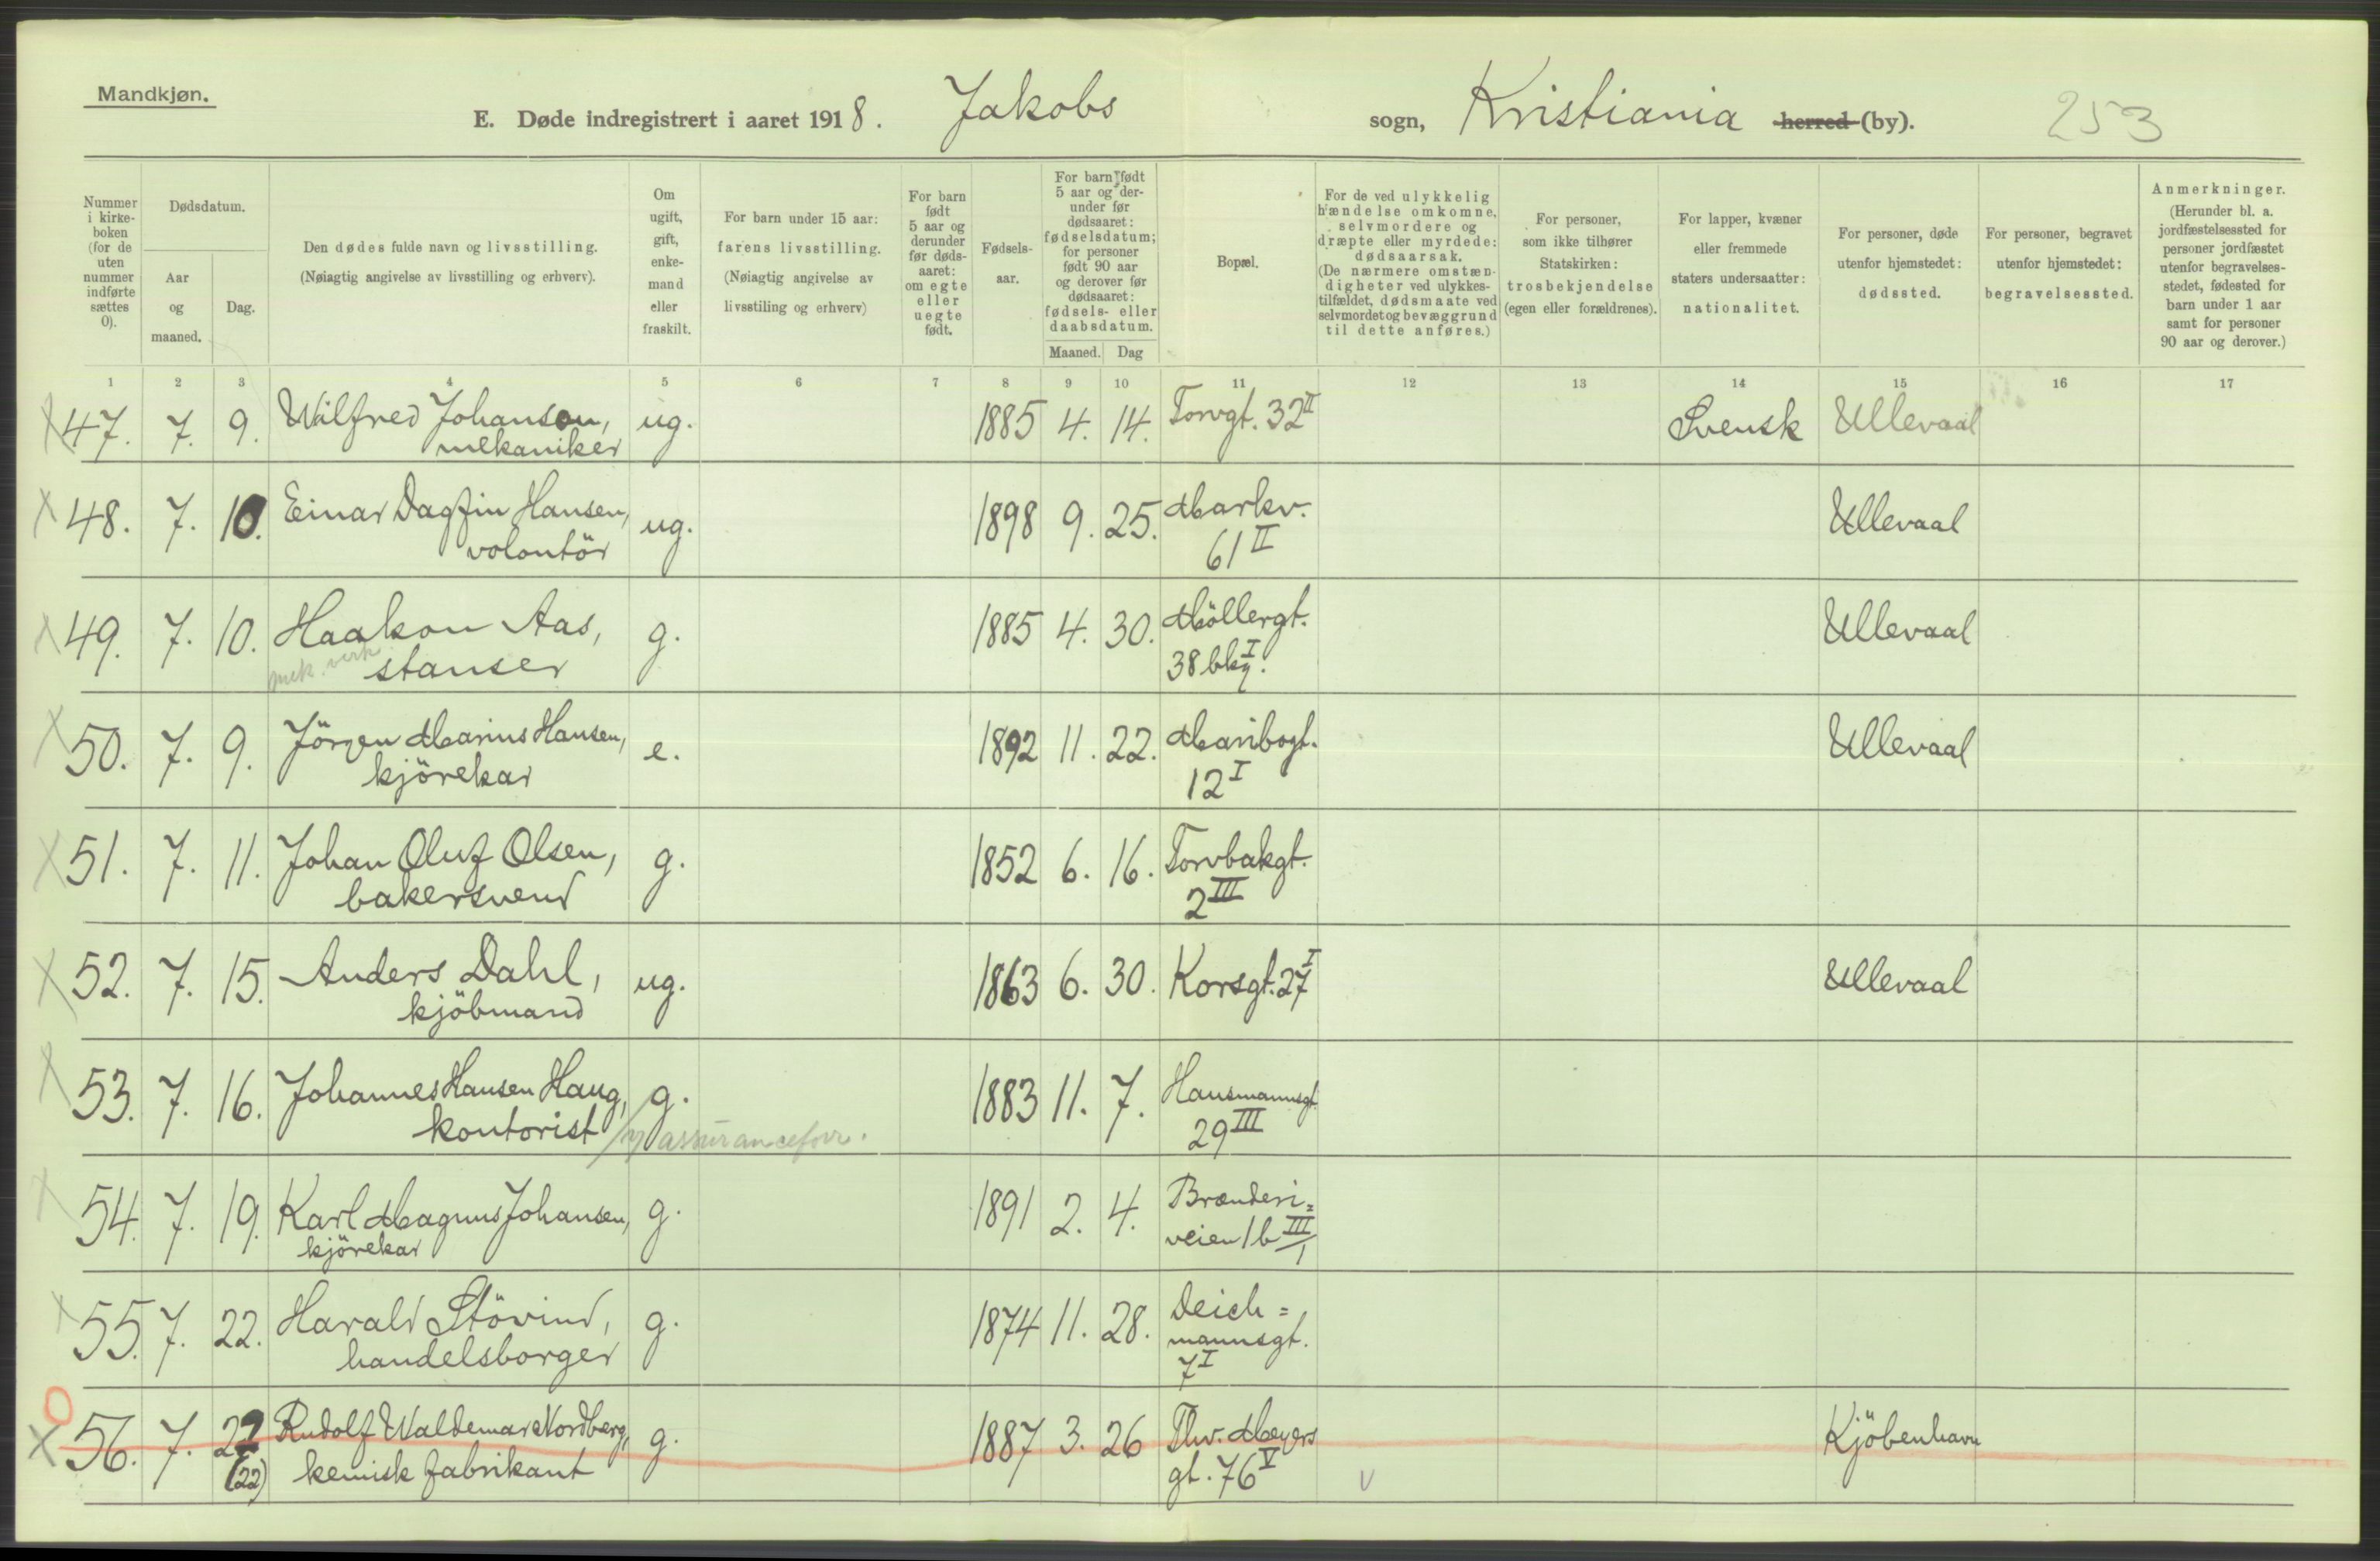 Mandkjøn.
E. Døde indregistrert i aaret 1918. Jakobs sogn, Kristiania herred (by). 253
Nummer i kirkeboken (for de uten nummer indførte sættes 0).
Dødsdatum.
Aar og maaned.
Dag.
Den dødes fulde navn og livsstilling.
(Nøiagtig angivelse av livsstilling og erhverv).
Om ugift, gift, enkemand eller fraskilt.
For barn under 15 aar: farens livsstilling.
(Nøiagtig angivelse av livsstiling og erhverv)
For barn født 5 aar og derunder før dødsaaret: om egte eller uegte født.
Fødselsaar.
For barn født 5 aar og derunder før dødsaaret: fødselsdatum; for personer født 90 aar og derover før dødsaaret: fødsels- eller daabsdatum.
Maaned. Dag
Bopæl.
For de ved ulykkelig hændelse omkomne, selvmordere og dræpte eller myrdede: dødsaarsak.
(De nærmere omstændigheter ved ulykkestilfældet, dødsmaate ved selvmordet og bevæggrund til dette anføres.)
For personer, som ikke tilhører Statskirken: trosbekjendelse (egen eller forældrenes).
For lapper, kvæner eller fremmede staters undersaatter: nationalitet.
For personer, døde utenfor hjemstedet: dødssted.
For personer, begravet utenfor hjemstedet: begravelsessted.
Anmerkninger.
(Herunder bl. a. jordfæstelsessted for personer jordfæstet utenfor begravelsesstedet, fødested for barn under 1 aar samt for personer 90 aar og derover.)
1 2 3 4 5 6 7 8 9 10 11 12 13 14 15 16 17
X 47. 7. 9. Wilfred Johanson, mekaniker ug. 1885 4. 14. Torvgt. 32 II Svensk Ullevaal
X 48. 7. 10. Einar Dagfin Hansen, volontör ug. 1898 9. 25. Markv. 61 II Ullevaal
X 49. 7. 10. Haakon Aas, mek. verk stanser g. 1885 4. 30. Möllergt. 38 bkg. I Ullevaal
X 50. 7. 9. Jörgen Marius Hansen, kjörekar e. 1892 11. 22. Maribogt. 12 I Ullevaal
X 51. 7. 11. Johan Oluf Olsen, bakersvend g. 1852 6. 16. Torvbakgt. 2 III
X 52. 7. 15. Anders Dahl, kjöbmand ug. 1863 6. 30. Korsgt. 27 I Ullevaal
X 53. 7. 16. Johannes Hansen Haug, kontorist / assuranceforr. g. 1883 11. 7. Hausmannsgt. 29 III
X 54. 7. 19. Karl Magnus Johansen, kjörekar g. 1891 2. 4. Brænderi= veien 1b III/1
X 55. 7. 22. Harald Stövind, handelsborger g. 1874 11. 28. Deich= mannsgt. 7 I
O X 56. 7. 22 (22) Rudolf Waldemar Nordberg, kemisk fabrikant g. 1887 3. 26 Thv. Meyers gt. 76 V V Kjöbenhavn